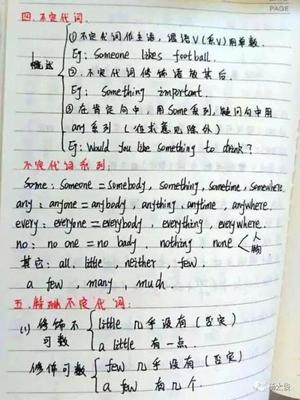 PAGE
四. 不定代词.
概述
① 不定代词作主语, 谓语V(系V)用单数.
Eg: Someone likes football.
②. 不定代词修饰语放其后.
Eg: Something important.
③ 在肯定句中, 用Some系列, 疑问句中用
any系列 (征求意见除外)
Eg: Would you like something to drink?
不定代词系列:
Some: Someone = somebody, something, sometime, somewhere.
any: anyone = anybody, anything, anytime, anywhere.
every: everyone = everybody, everything, everywhere.
no: no one = no body, nothing none 人 物
其它: all, little, neither, few
a few, many, much.
五. 特殊不定代词:
(1) 修饰不可数 little 几乎没有 (否定)
a little 有一点.
修饰可数 few 几乎没有 (否定)
a few 有几个.